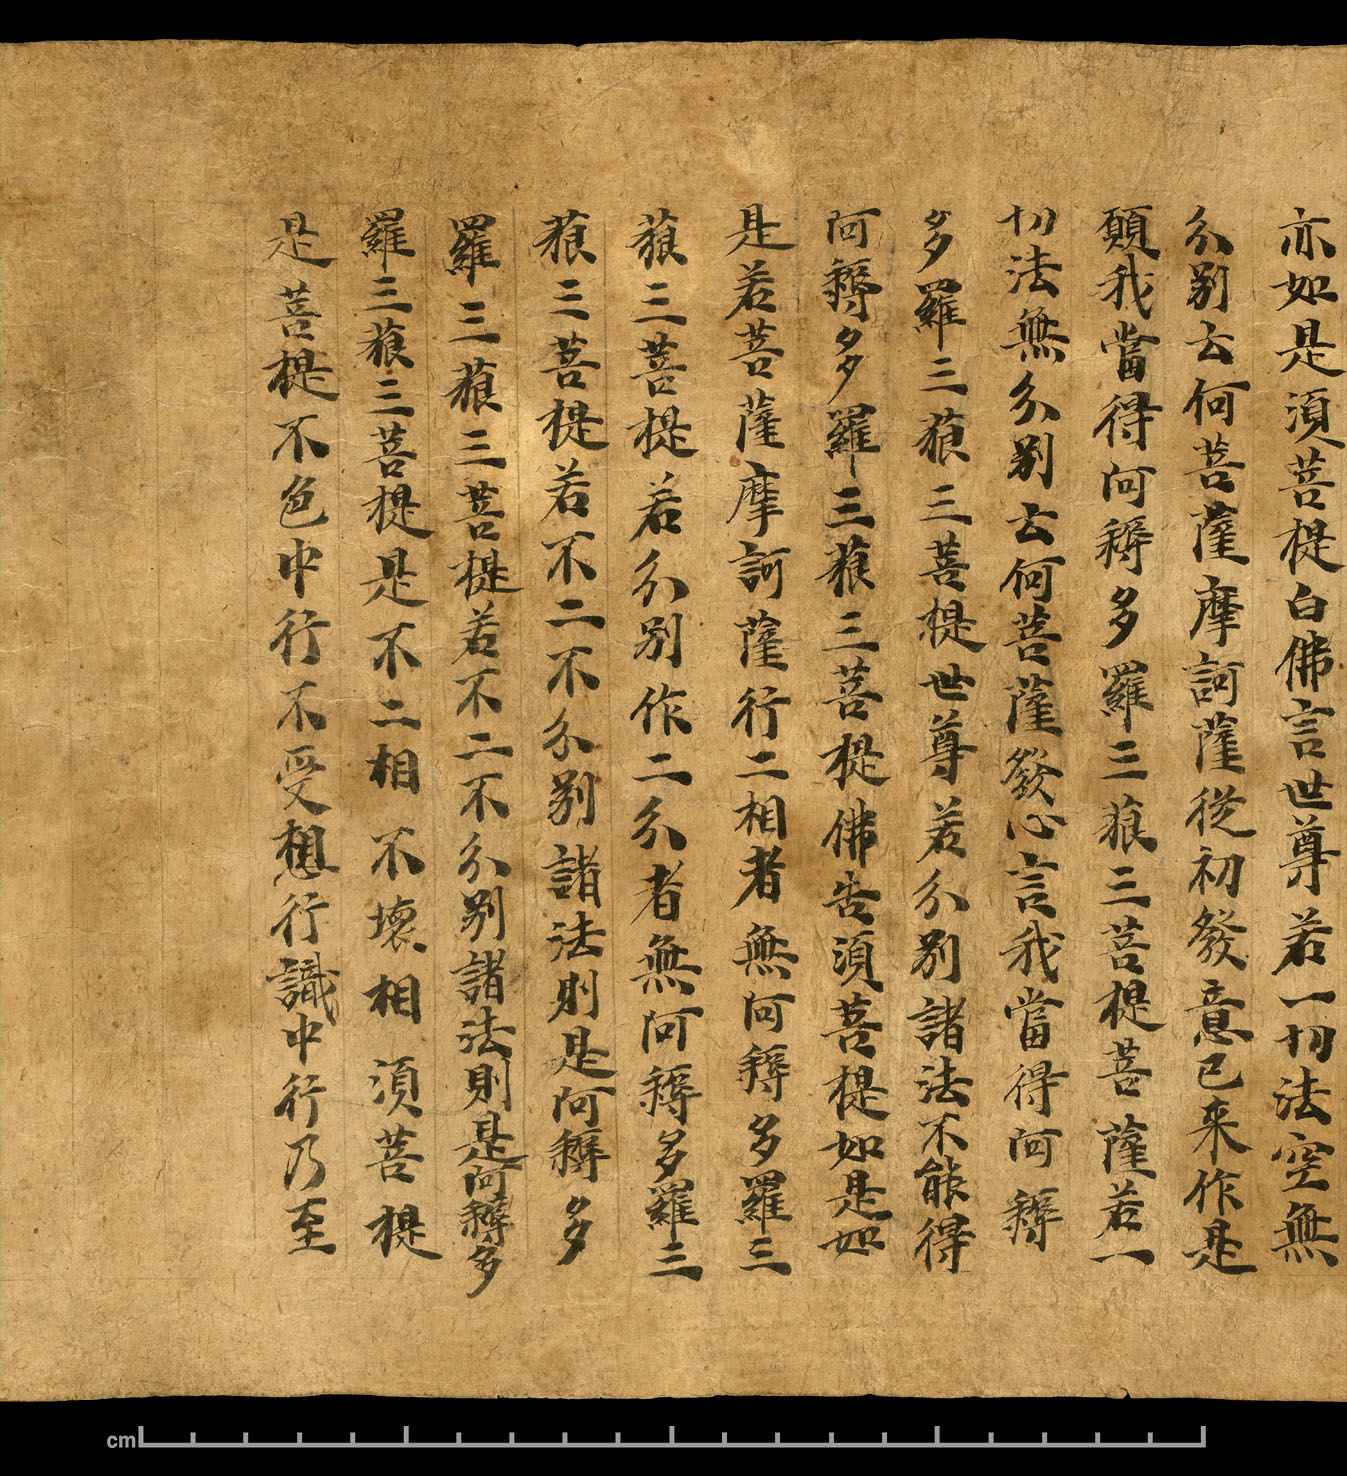 亦如是須菩提白佛言世尊若一切法空無
分別云何菩薩摩訶薩從初發意已来作是
願我當得阿耨多羅三藐三菩提菩薩若一
切法無分別云何菩薩發心言我當得阿耨
多羅三藐三菩提世尊若分別諸法不能得
阿耨多多羅三藐三菩提佛告須菩提如是如
是若菩薩摩訶薩行二相者無阿耨多羅三
藐三菩提若分別作二分者無阿耨多羅三
藐三菩提若不二不分別諸法則是阿耨多
羅三藐三菩提若不二不分別諸法則是阿耨多
羅三藐三菩提是不二相不壞相須菩提
是菩提不色中行不受想行識中行乃至
cm